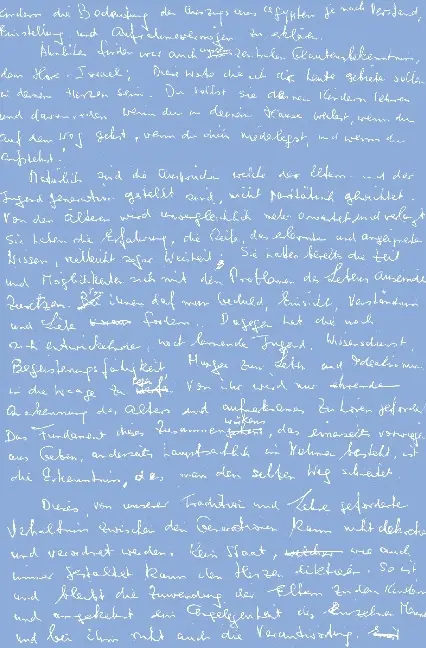 Kindern die Bedeutung des Auszugs aus Ägypten je nach Verstand,
Einstellung und Aufnahmevermögen zu erklären.
Ähnliches finden wir auch zentralen Glaubensbekenntnis,
dem Höre Israel; Diese Worte die ich dir heute gebiete sollen
in deinem Herzen sein. Du sollst sie deinen Kindern lehren
und davon reden wenn du in deinem Hause weilst, wenn du
auf dem Weg gehst, wenn du dich niederlegst, und wenn du
aufstehst.
Natürlich sind die Ansprüche welche der älteren und der
Jugend generation gestellt sind, nicht paritätisch gewichtet.
Von den Älteren wird unvergleichlich mehr erwartet und verlangt
Sie haben die Erfahrung, die Reife, das erlernte und angeeignete
Wissen, vielleicht sogar Weisheit; Sie hatten bereits die Zeit
und Möglichkeiten sich mit den Problemen des Lebens auseinander
zusetzen. Von ihnen darf man Geduld, Einsicht, Verständnis
und Liebe fordern. Dagegen hat die noch
sich entwickelnde, noch lernende Jugend, Wissensdurst,
Begeisterungsfähigkeit Hunger zum Leben und Idealismus
in die Waage zu legen. Von ihr wird nur
Anerkennung des Alters und aufmerksames Zuhören gefordert
Das Fundament dieses, das einerseits vorwiegend
aus Geben, anderseits hauptsächlich in Nehmen besteht, ist
die Erkenntnis, das man den selben Weg schreitet.
Dieses, von unserer Tradition und Lehre geforderte
Verhältnis zwischen den Generationen kann nicht dekretiert
und verordnet werden. Kein Staat, wie auch
immer gestaltet kann den Herzen diktieren. So ist
und bleibt die Zuwendung der Eltern zu den Kindern
und umgekehrt ein Angelegenheit des Einzelnen
und bei ihm ruht auch die Verantwortung.